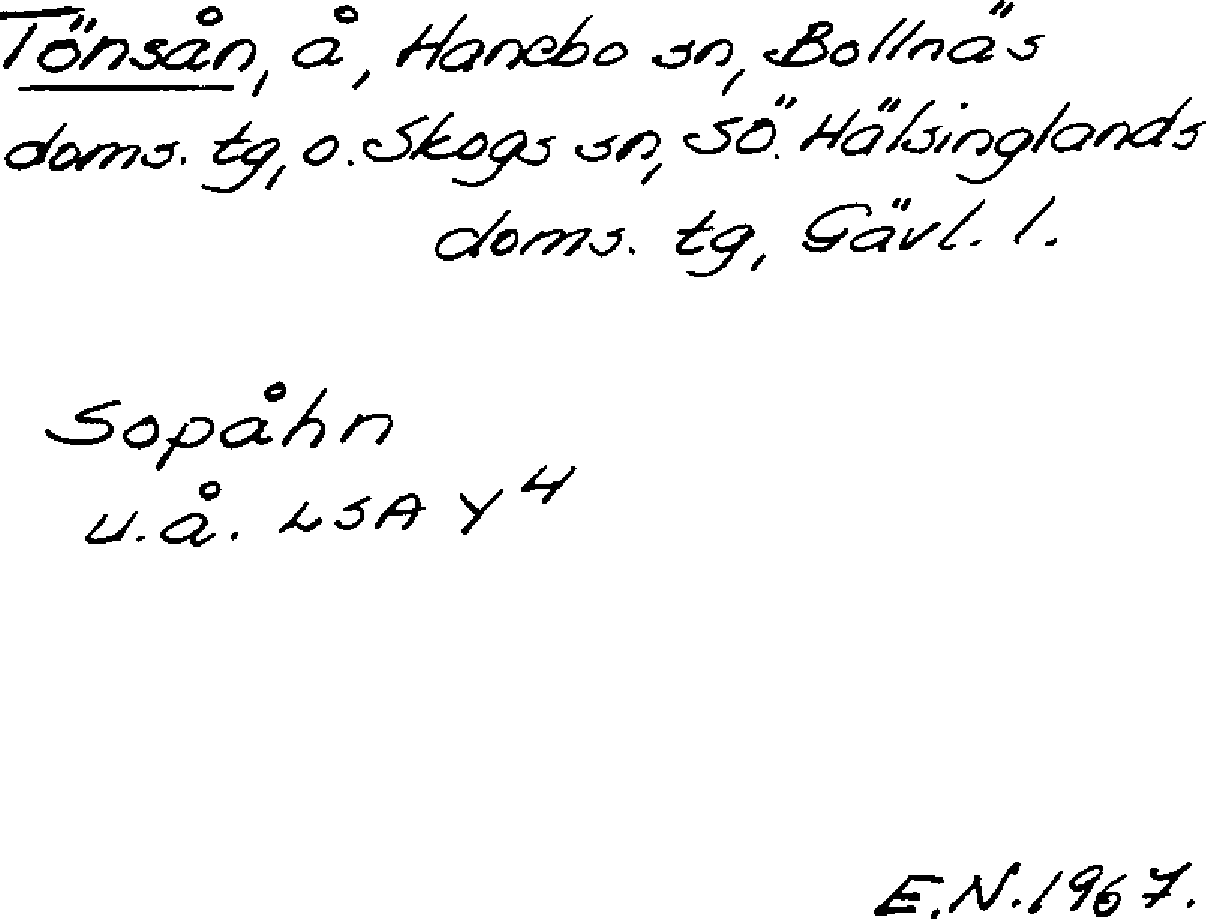 Tönsån, å, Hanebo sn, Bollnäs
doms. tg, o. Skogs sn, SÖ. Hälsinglands
doms. tg, Gävl. l.
Sopåhn
u.å. LSA Y4
E.N. 1967.